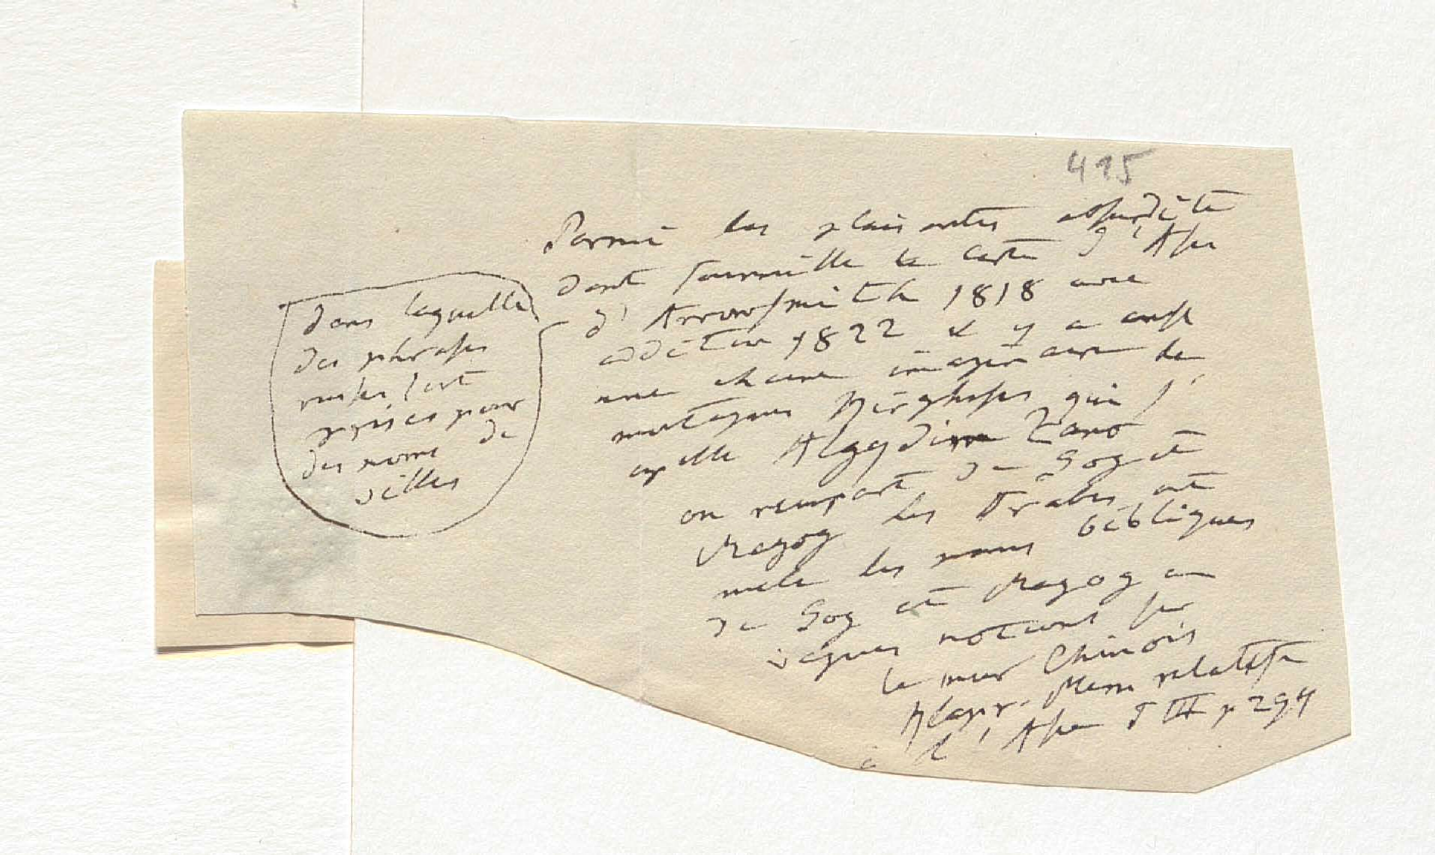 415
Parmi les plaisantes absurdités
dont fourmille la carte d'Asie
d'Arrowsmith 1818 avec
addition 1822 il y a aussi
une chaine imaginaire de
montagnes Kirghises qui s'
apelle Algydim Zano
ou rempart de Gog et
Magog les Arabes ont
melé les noms bibliques
de Gog et Magog au
vagues notions sur
le mur Chinois
Klapr. Mem relatifs
à l'Asie T III p 294
dans laquelle
des phrases
russes sont
prises pour
des noms de
villes